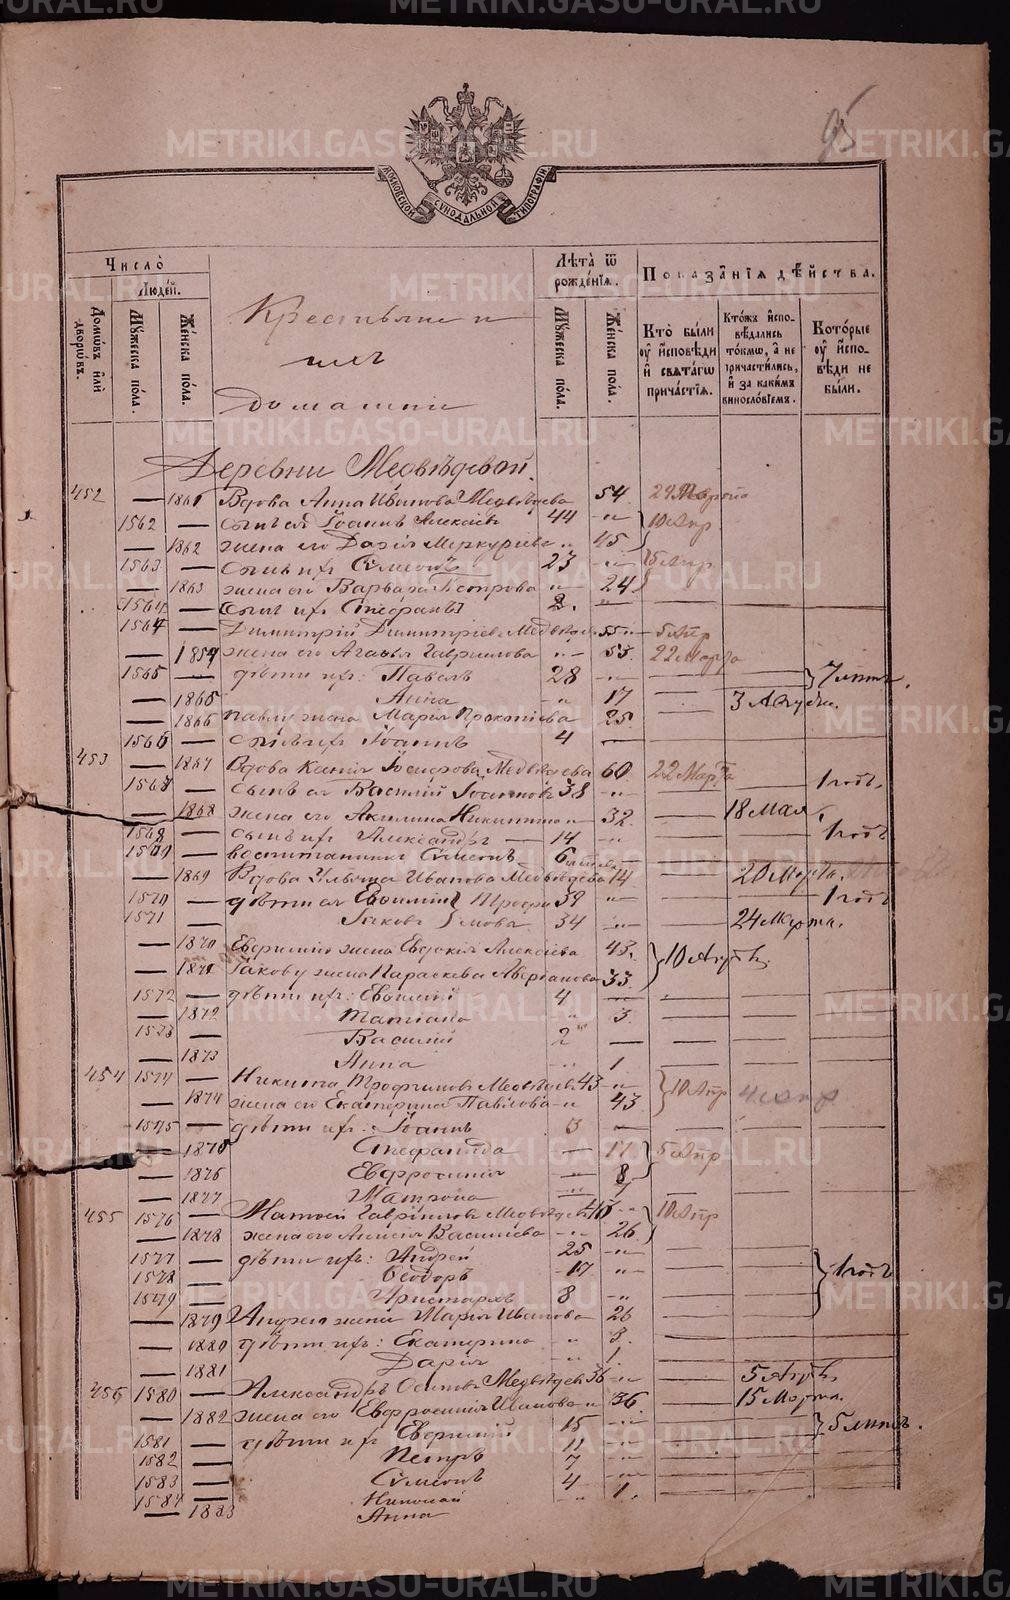 95
МОСКОВСКОЙ СѴНОДАЛЬНОЙ ТИПОГРАФІИ
Число
Людей.
Домѡвъ или дворѡвъ.
Мꙋжеска пола.
Женска пола.
Крестьяне и
ихъ
домашніе
Лѣта ѿ рожденїѧ.
Мꙋжеска пола.
Женска пола.
Показанїѧ дѣйства.
Кто были ᲂу исповѣди и свѧтагѡ причастїѧ.
Ктожъ исповѣдались токмѡ, а не причастились, и за какимъ винословїемъ.
Которые ᲂу исповѣди не были.
Деревни Медвѣдевой.
452 — 1861 Вдова Анна Иванова Медвѣдева 54
1562 — сынъ ея Іоаннъ Алексѣевъ 44 10 Апр
— 1862 жена его Дарія Меркуріева 45
1563 — сынъ ихъ Сѵмеонъ 23 5 Апр
— 1863 жена его Варвара Петрова 24
1564 — сынъ ихъ Стефанъ 2
1564 — Димитрій Димитріевъ Медвѣдевъ 55 5 Апр
жена его Агафья Гавриилова 53 22 Марта
1565 — дѣти ихъ: Павелъ 28 7 лѣтъ.
— 1865 Анна 17
— 1866 Павлу жена Марія Прокопіева 25
1566 — сынъ ихъ Іоаннъ 4
453 — 1867 Вдова Ксенія Іосифова Медвѣдева 60 22 Марта
1567 — сынъ ея Василій Іоанновъ 38 1 годъ.
— 1868 жена его Акилина Никитина 32 18 Мая
1568 — сынъ ихъ Александръ 14 1 годъ
1569 — воспитанникъ Сѵмеонъ 6
— 1869 Вдова Ульяна Иванова Медвѣдева 20 Марта.
1570 — дѣти ея Евѳимій 39 1 годъ
1571 — Іаковъ 34 24 Марта.
— 1870 Евѳимію жена Евдокія Алексѣева 43 10 Апрѣл.
— 1871 Іакову жена Параскева 33
1572 — дѣти ихъ: Евѳимій 4
— 1872 Татіана 3
1573 — Василій 2
— 1873 Анна 1
454 1574 — Никита Трофимовъ Медвѣдевъ 43 10 Апр
— 1874 жена его Екатерина Павлова 43
1575 — дѣти ихъ: Іоаннъ 3
— 1875 Стефанида 17 5 Апр
— 1876 Евфросинія 8
— 1877 Матрона
455 1576 — Матѳей Гавріиловъ Медвѣдевъ 10 Апр
— 1878 жена его Васильева 26
1577 — дѣти ихъ: Андрей 25 1 годъ
1578 — Ѳеодоръ 17
1579 — Аристархъ 8
— 1879 Андрею жена Марія Иванова 26
— 1880 дѣти ихъ: Екатерина 3.
— 1881 Дарія 1.
456 1580 — Александръ Осиповъ Медвѣдевъ 36 5 Апрѣл.
— 1882 жена его Евфросинія Иванова 36 15 Марта.
1581 — дѣти ихъ 15 5 лѣтъ.
1582 — Петръ 11
1583 — Сѵмеонъ 7
1584 — Николай 4
— 1883 Анна 1.
METRIKI.GASO-URAL.RU